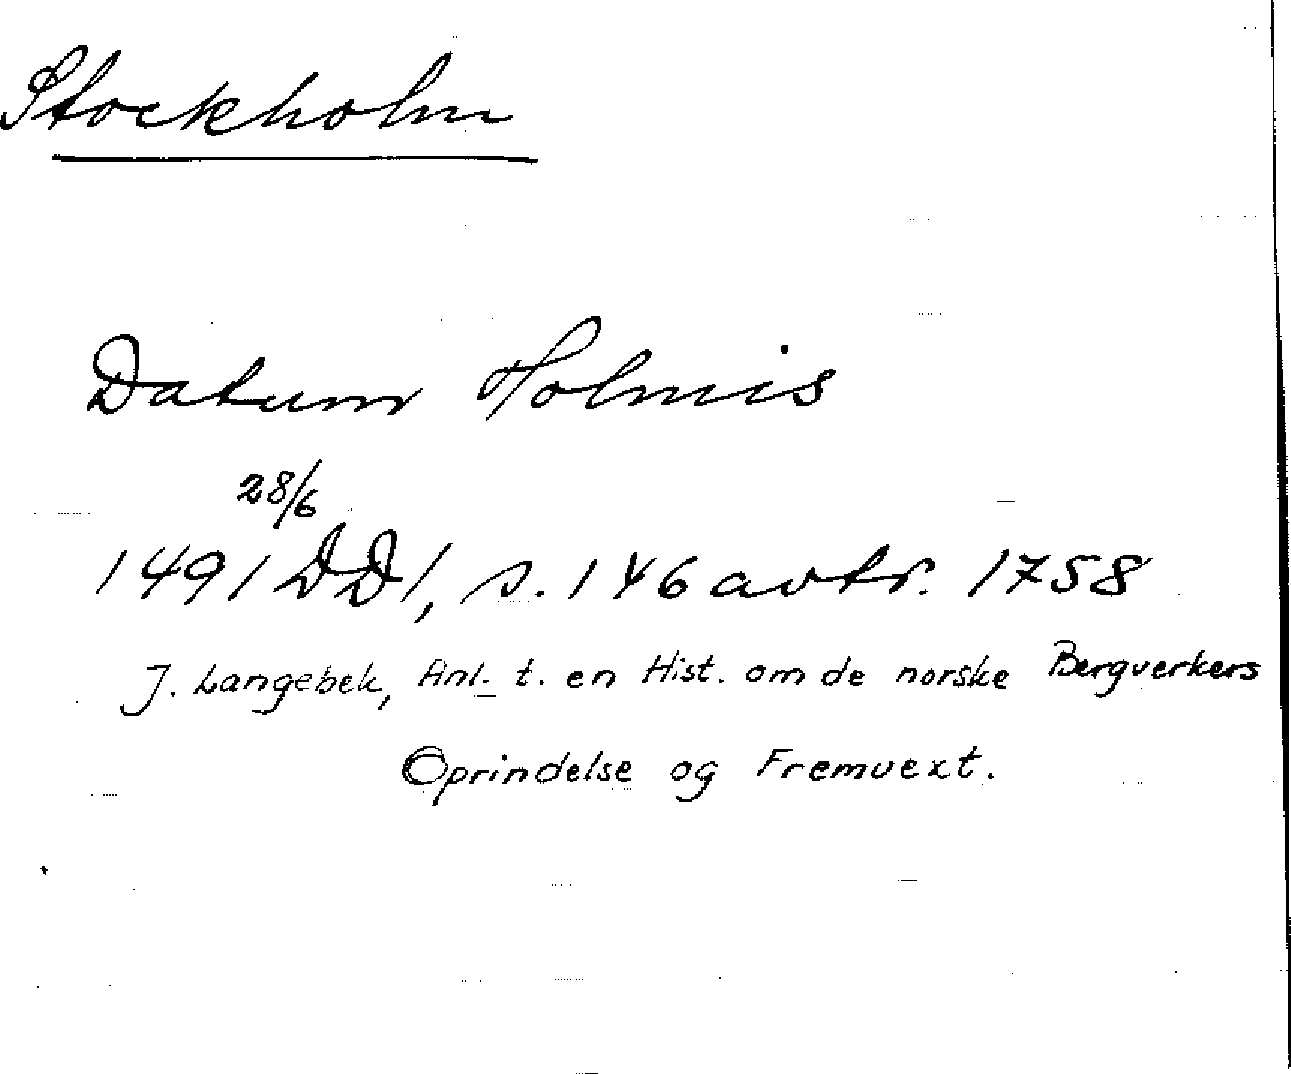 Stockholm
Datum Holmis
28/6
1491 DD1, s. 146 avtr. 1758
J. Langebek, Anl. t. en Hist. om de norske Bergverkers
Oprindelse og Fremvext.